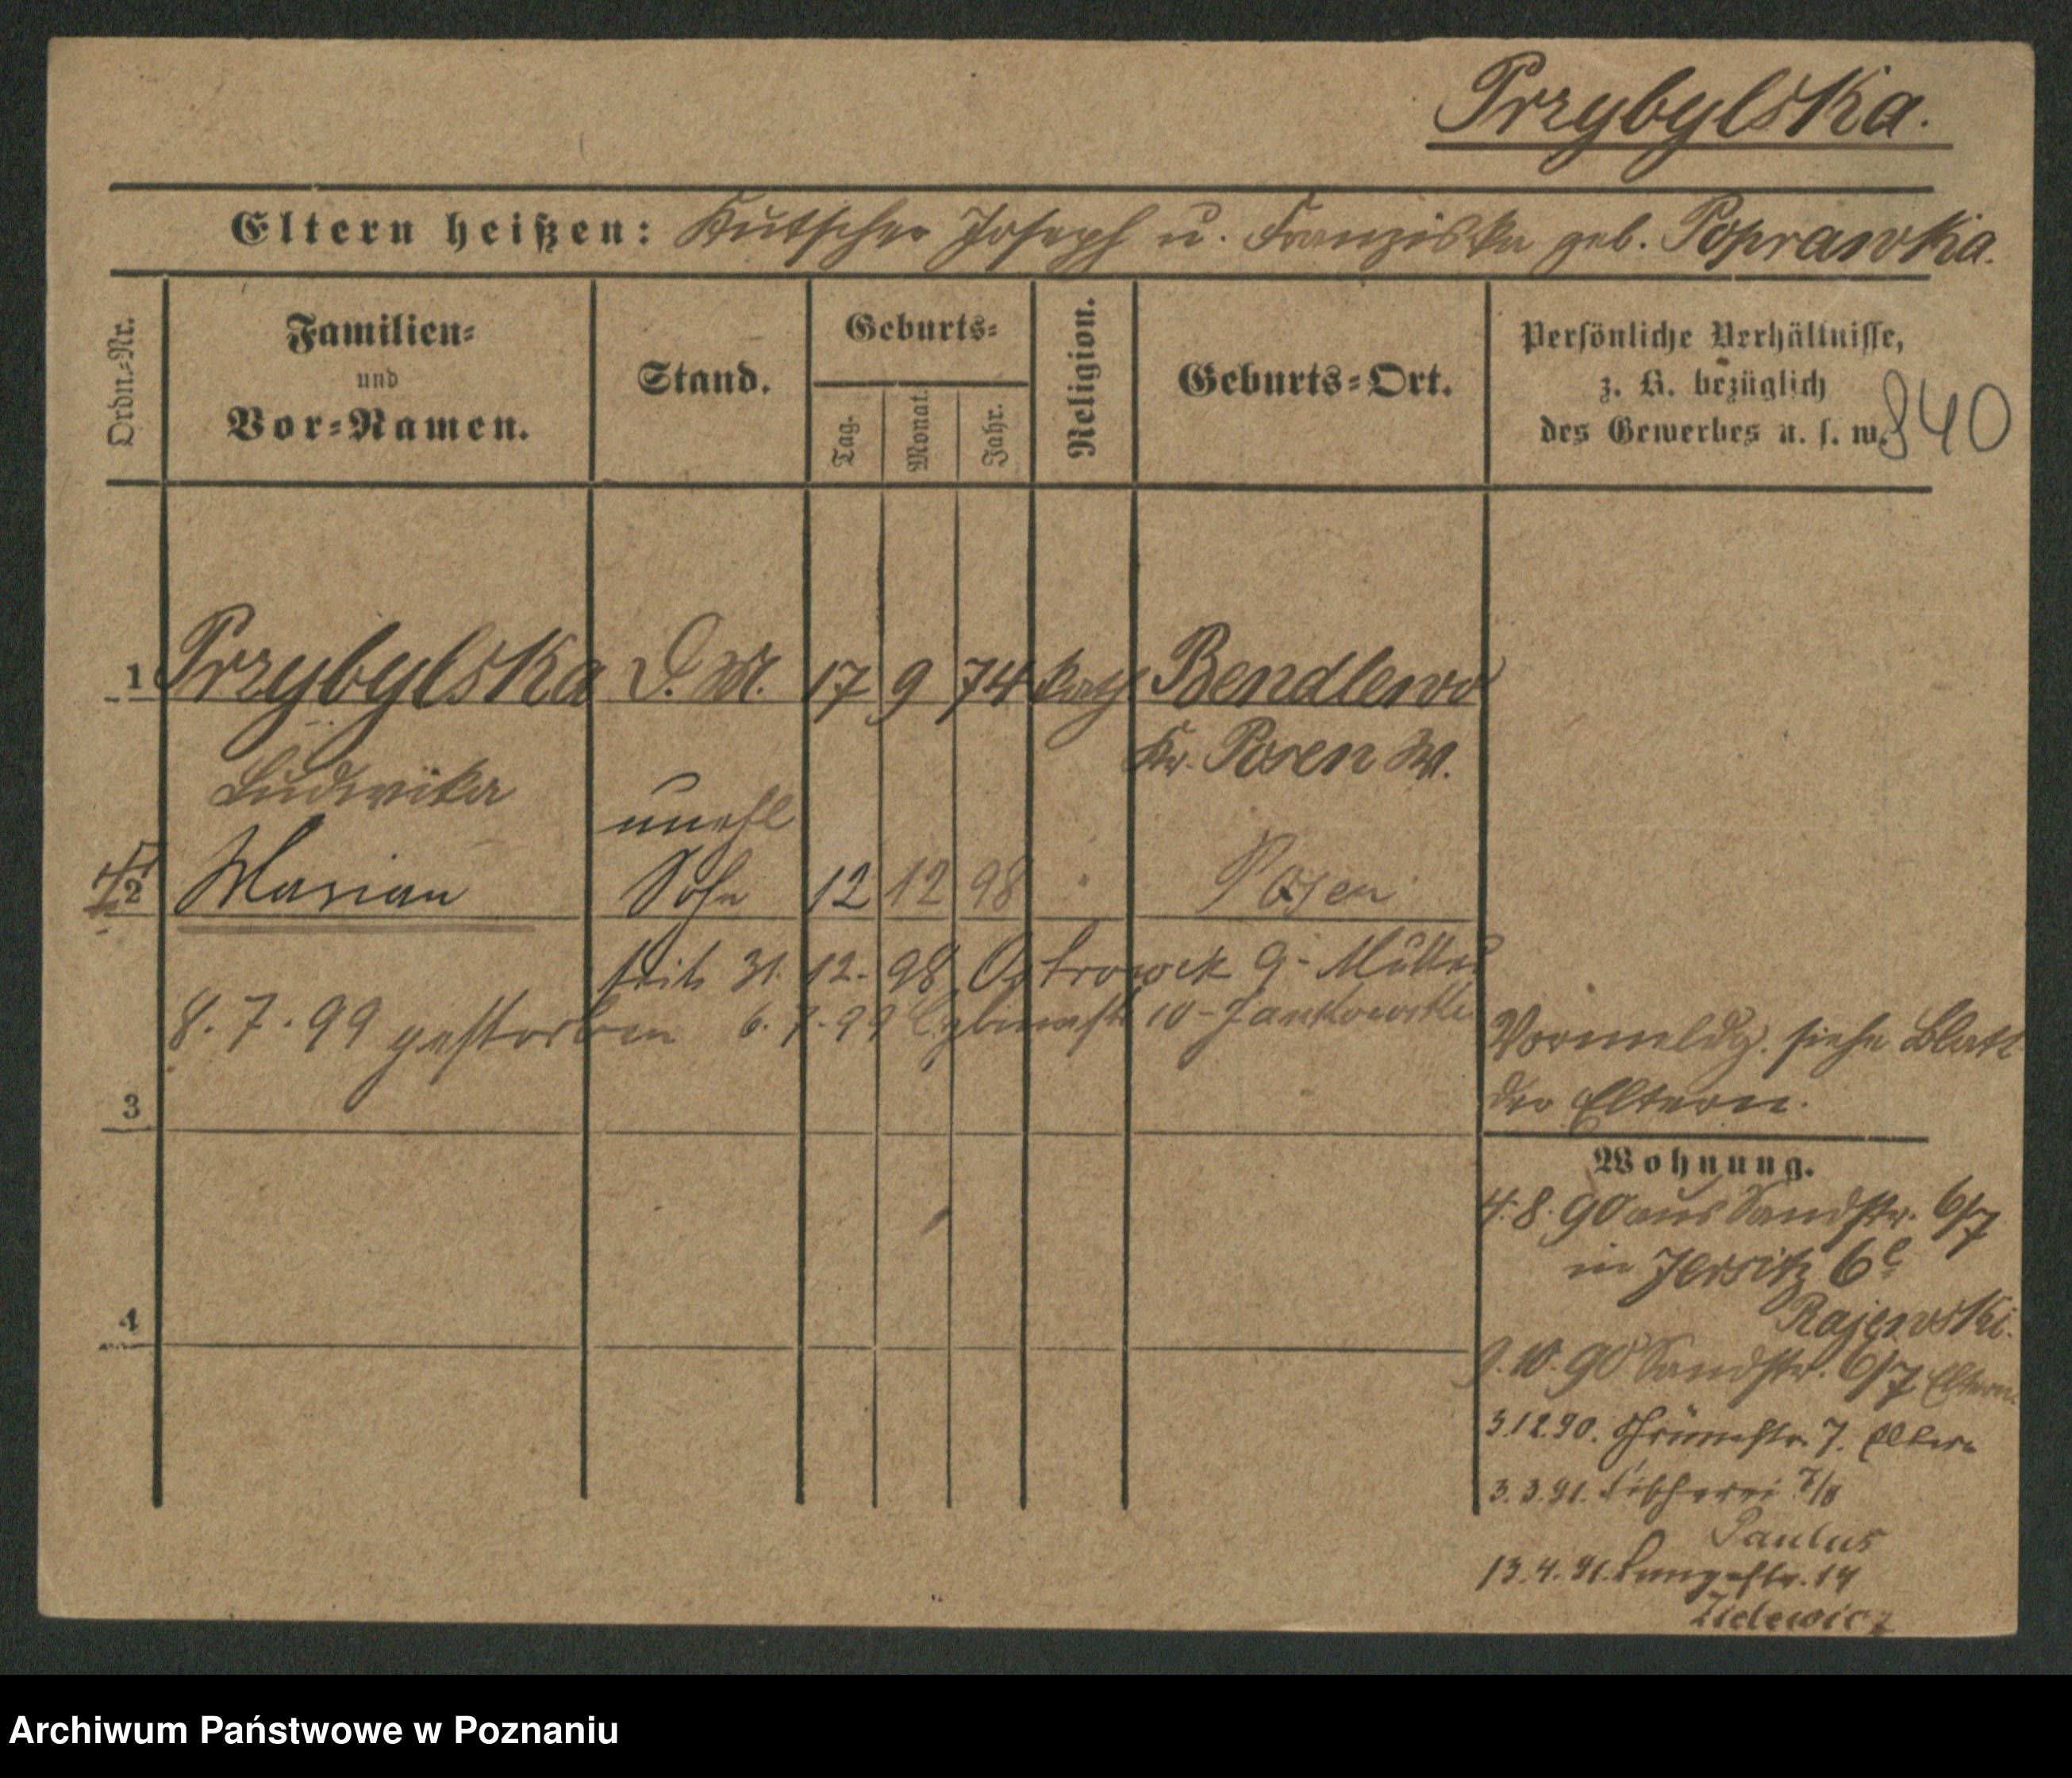 Przybylska.
Eltern heißen: Kutscher Joseph u. Franziska geb. Poprawka.
Ordn.-Nr.
Familien-
und
Vor-Namen.
Stand.
Geburts-
Tag.
Monat.
Jahr.
Religion.
Geburts-Ort.
Persönliche Verhältnisse,
z. B. bezüglich
des Gewerbes u. s. w.
840
1 Przybylska D. M. 17 9 74 kath Bendlewo
Kr. Posen W.
Ludwika
unehl
2 Marian Sohn 12 12 98 Posen
seit 31. 12. 98 Ostrowek 9 - Mutter
8. 7. 99 gestorben 6. 7. 99 10 - Jankowski
Vormeldg. siehe Blatt
der Eltern.
3
Wohnung.
4. 8. 90 aus Sandstr. 6/7
in Jersitz 6c
Rajewski.
4
9. 10. 90 Sandstr. 6/7 Eltern.
3.12.90. Grünestr. 7. Eltern
3.3.91. Fischerei 7/8
Paulus
13.4.91. Langestr. 14
Zielewicz
Archiwum Państwowe w Poznaniu